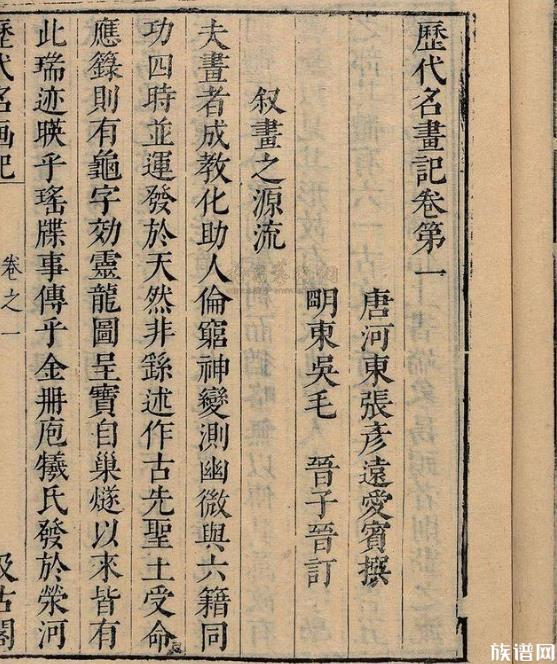 歷代名畫記卷第一
唐河東張彥遠愛賓撰
明東吳毛　晉子晉訂
叙畫之源流
夫畫者成教化助人倫窮神變測幽微與六籍同
功四時並運發於天然非繇述作古先聖王受命
應籙則有龜字効靈龍圖呈寶自巢燧以來皆有
此瑞迹暎乎瑤牒事傳乎金册庖犧氏發於滎河
歷代名画記
卷之一
汲古閣
族谱网